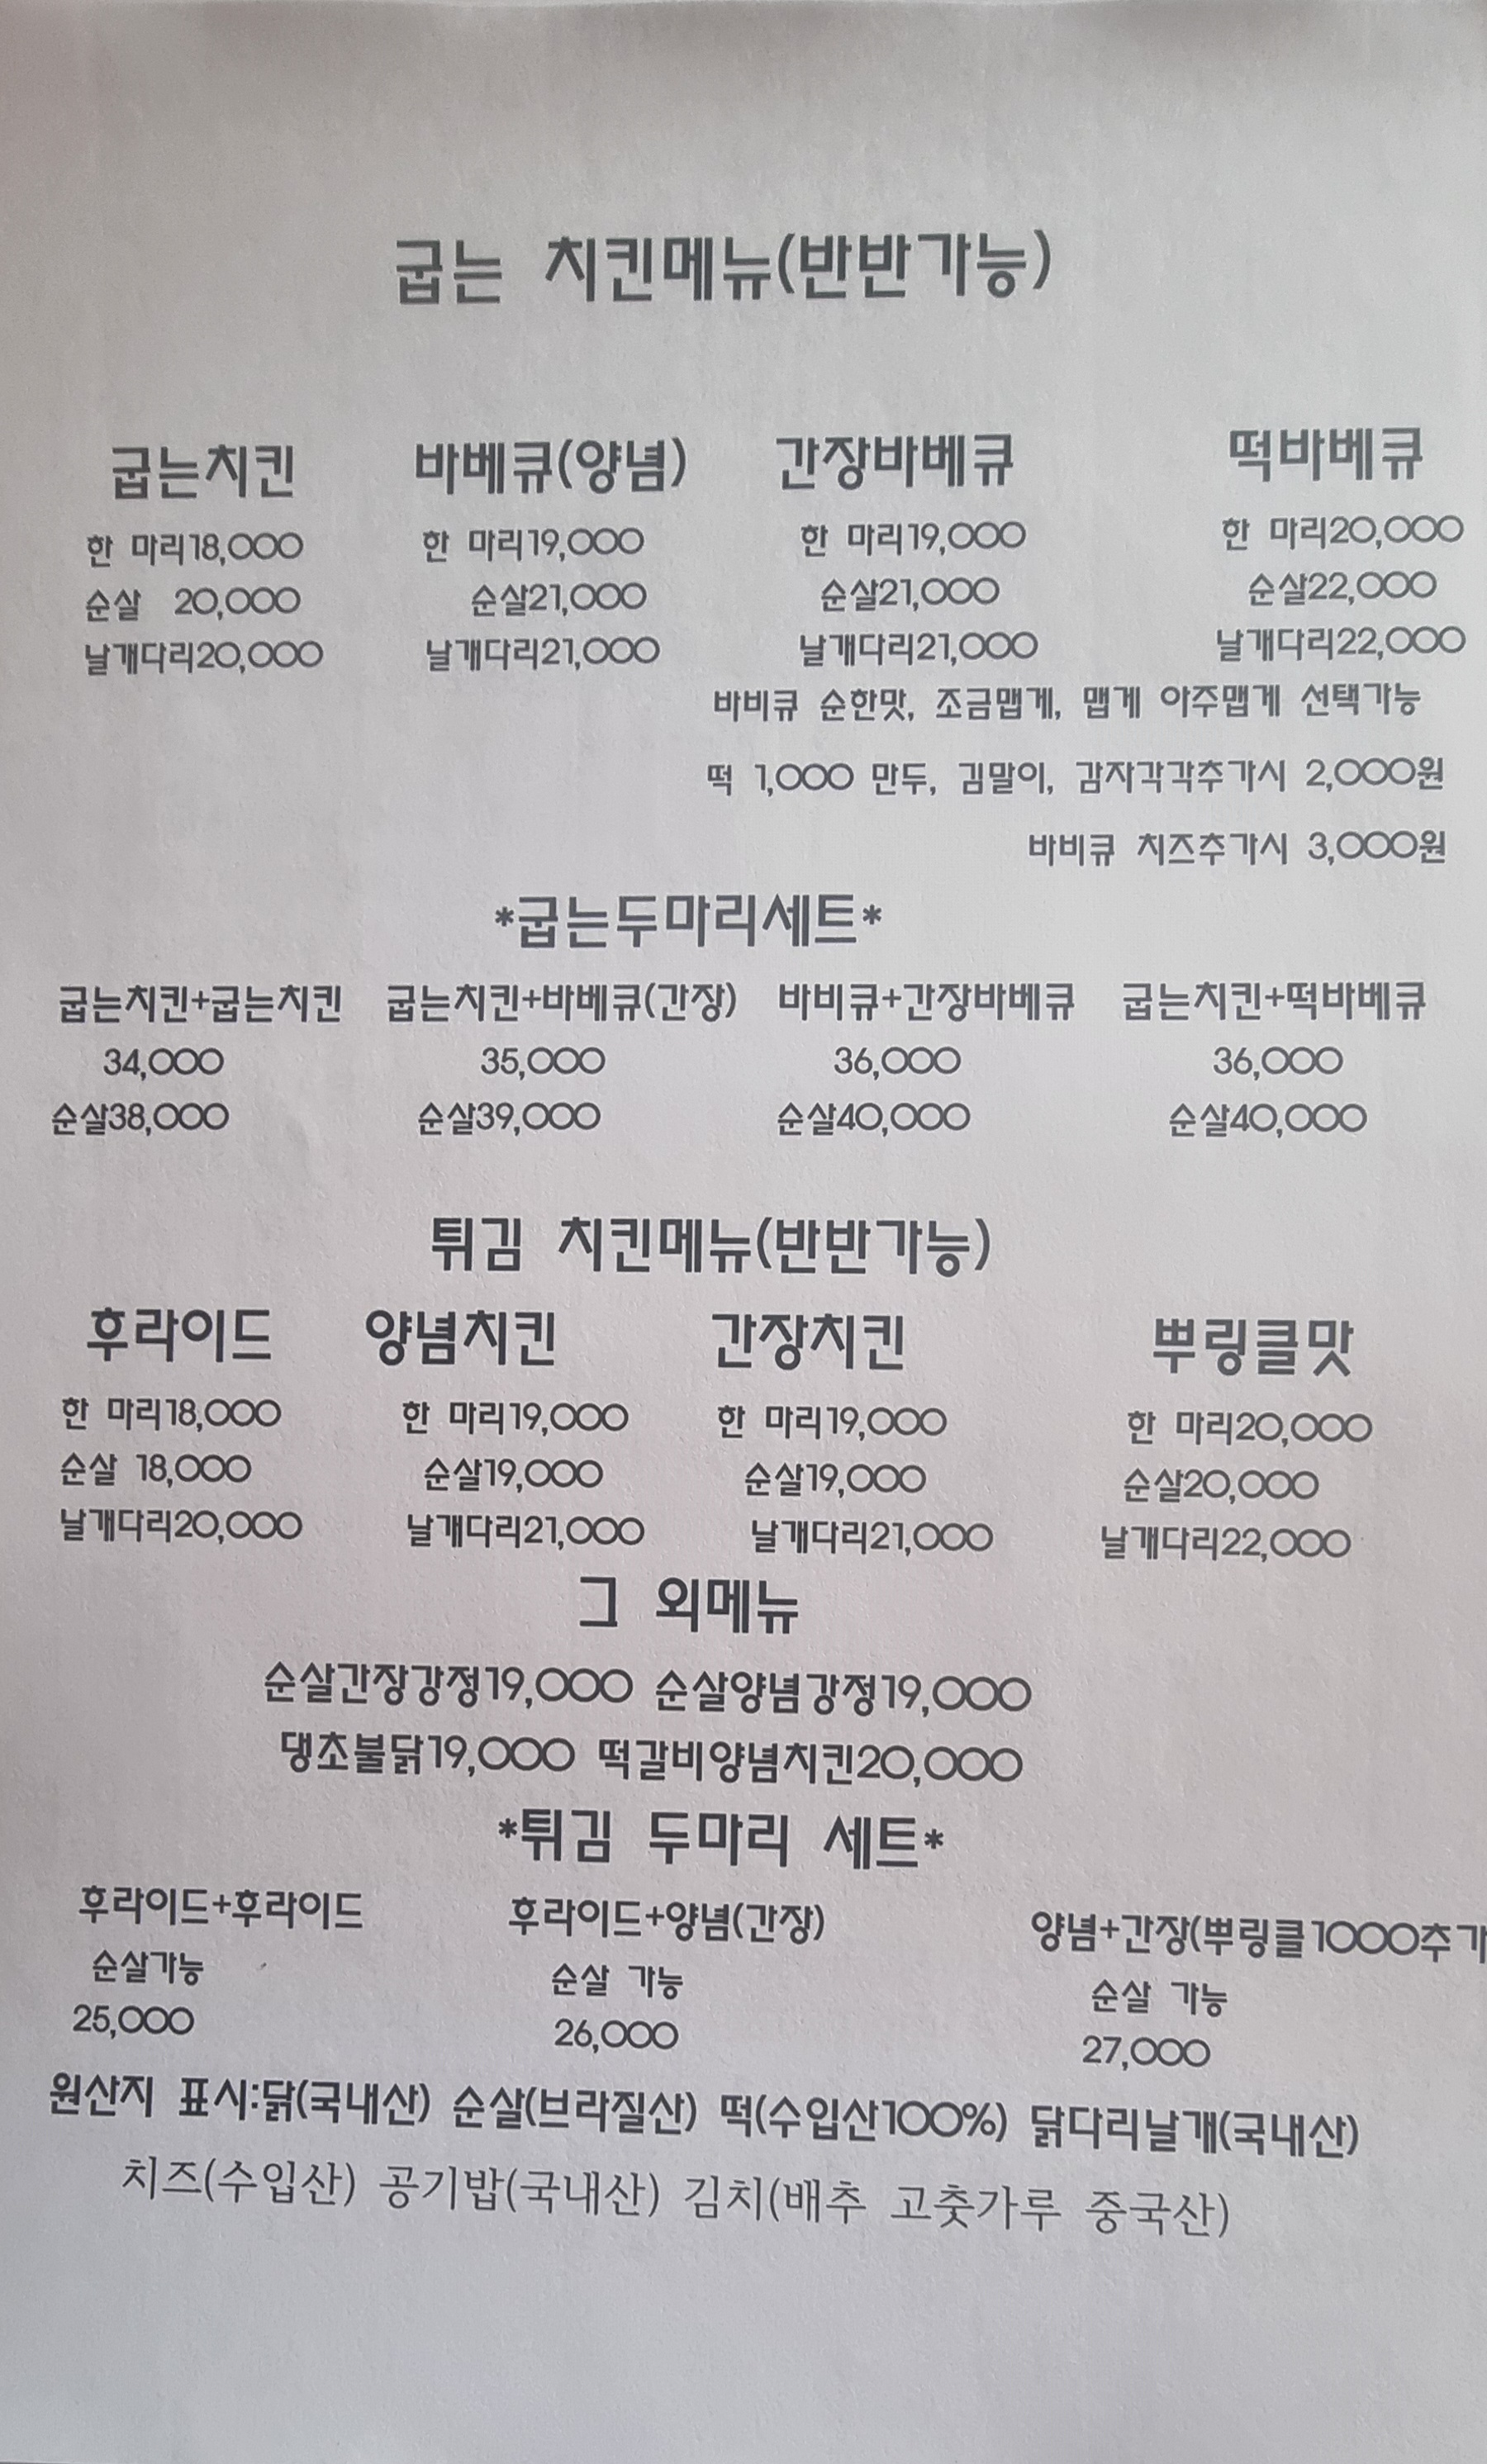 굽는 치킨메뉴(반반가능)
굽는치킨 바베큐(양념) 간장바베큐 떡바베큐
한 마리18,000 한 마리19,000 한 마리19,000 한 마리20,000
순살 20,000 순살21,000 순살21,000 순살22,000
날개다리20,000 날개다리21,000 날개다리21,000 날개다리22,000
바비큐 순한맛, 조금맵게, 맵게 아주맵게 선택가능
떡 1,000 만두, 김말이, 감자각각추가시 2,000원
바비큐 치즈추가시 3,000원
*굽는두마리세트*
굽는치킨+굽는치킨 굽는치킨+바베큐(간장) 바비큐+간장바베큐 굽는치킨+떡바베큐
34,000 35,000 36,000 36,000
순살38,000 순살39,000 순살40,000 순살40,000
튀김 치킨메뉴(반반가능)
후라이드 양념치킨 간장치킨 뿌링클맛
한 마리18,000 한 마리19,000 한 마리19,000 한 마리20,000
순살 18,000 순살19,000 순살19,000 순살20,000
날개다리20,000 날개다리21,000 날개다리21,000 날개다리22,000
그 외메뉴
순살간장강정19,000 순살양념강정19,000
댕초불닭19,000 떡갈비양념치킨20,000
*튀김 두마리 세트*
후라이드+후라이드 후라이드+양념(간장) 양념+간장(뿌링클1000추가
순살가능 순살 가능 순살 가능
25,000 26,000 27,000
원산지 표시:닭(국내산) 순살(브라질산) 떡(수입산100%) 닭다리날개(국내산)
치즈(수입산) 공기밥(국내산) 김치(배추 고춧가루 중국산)